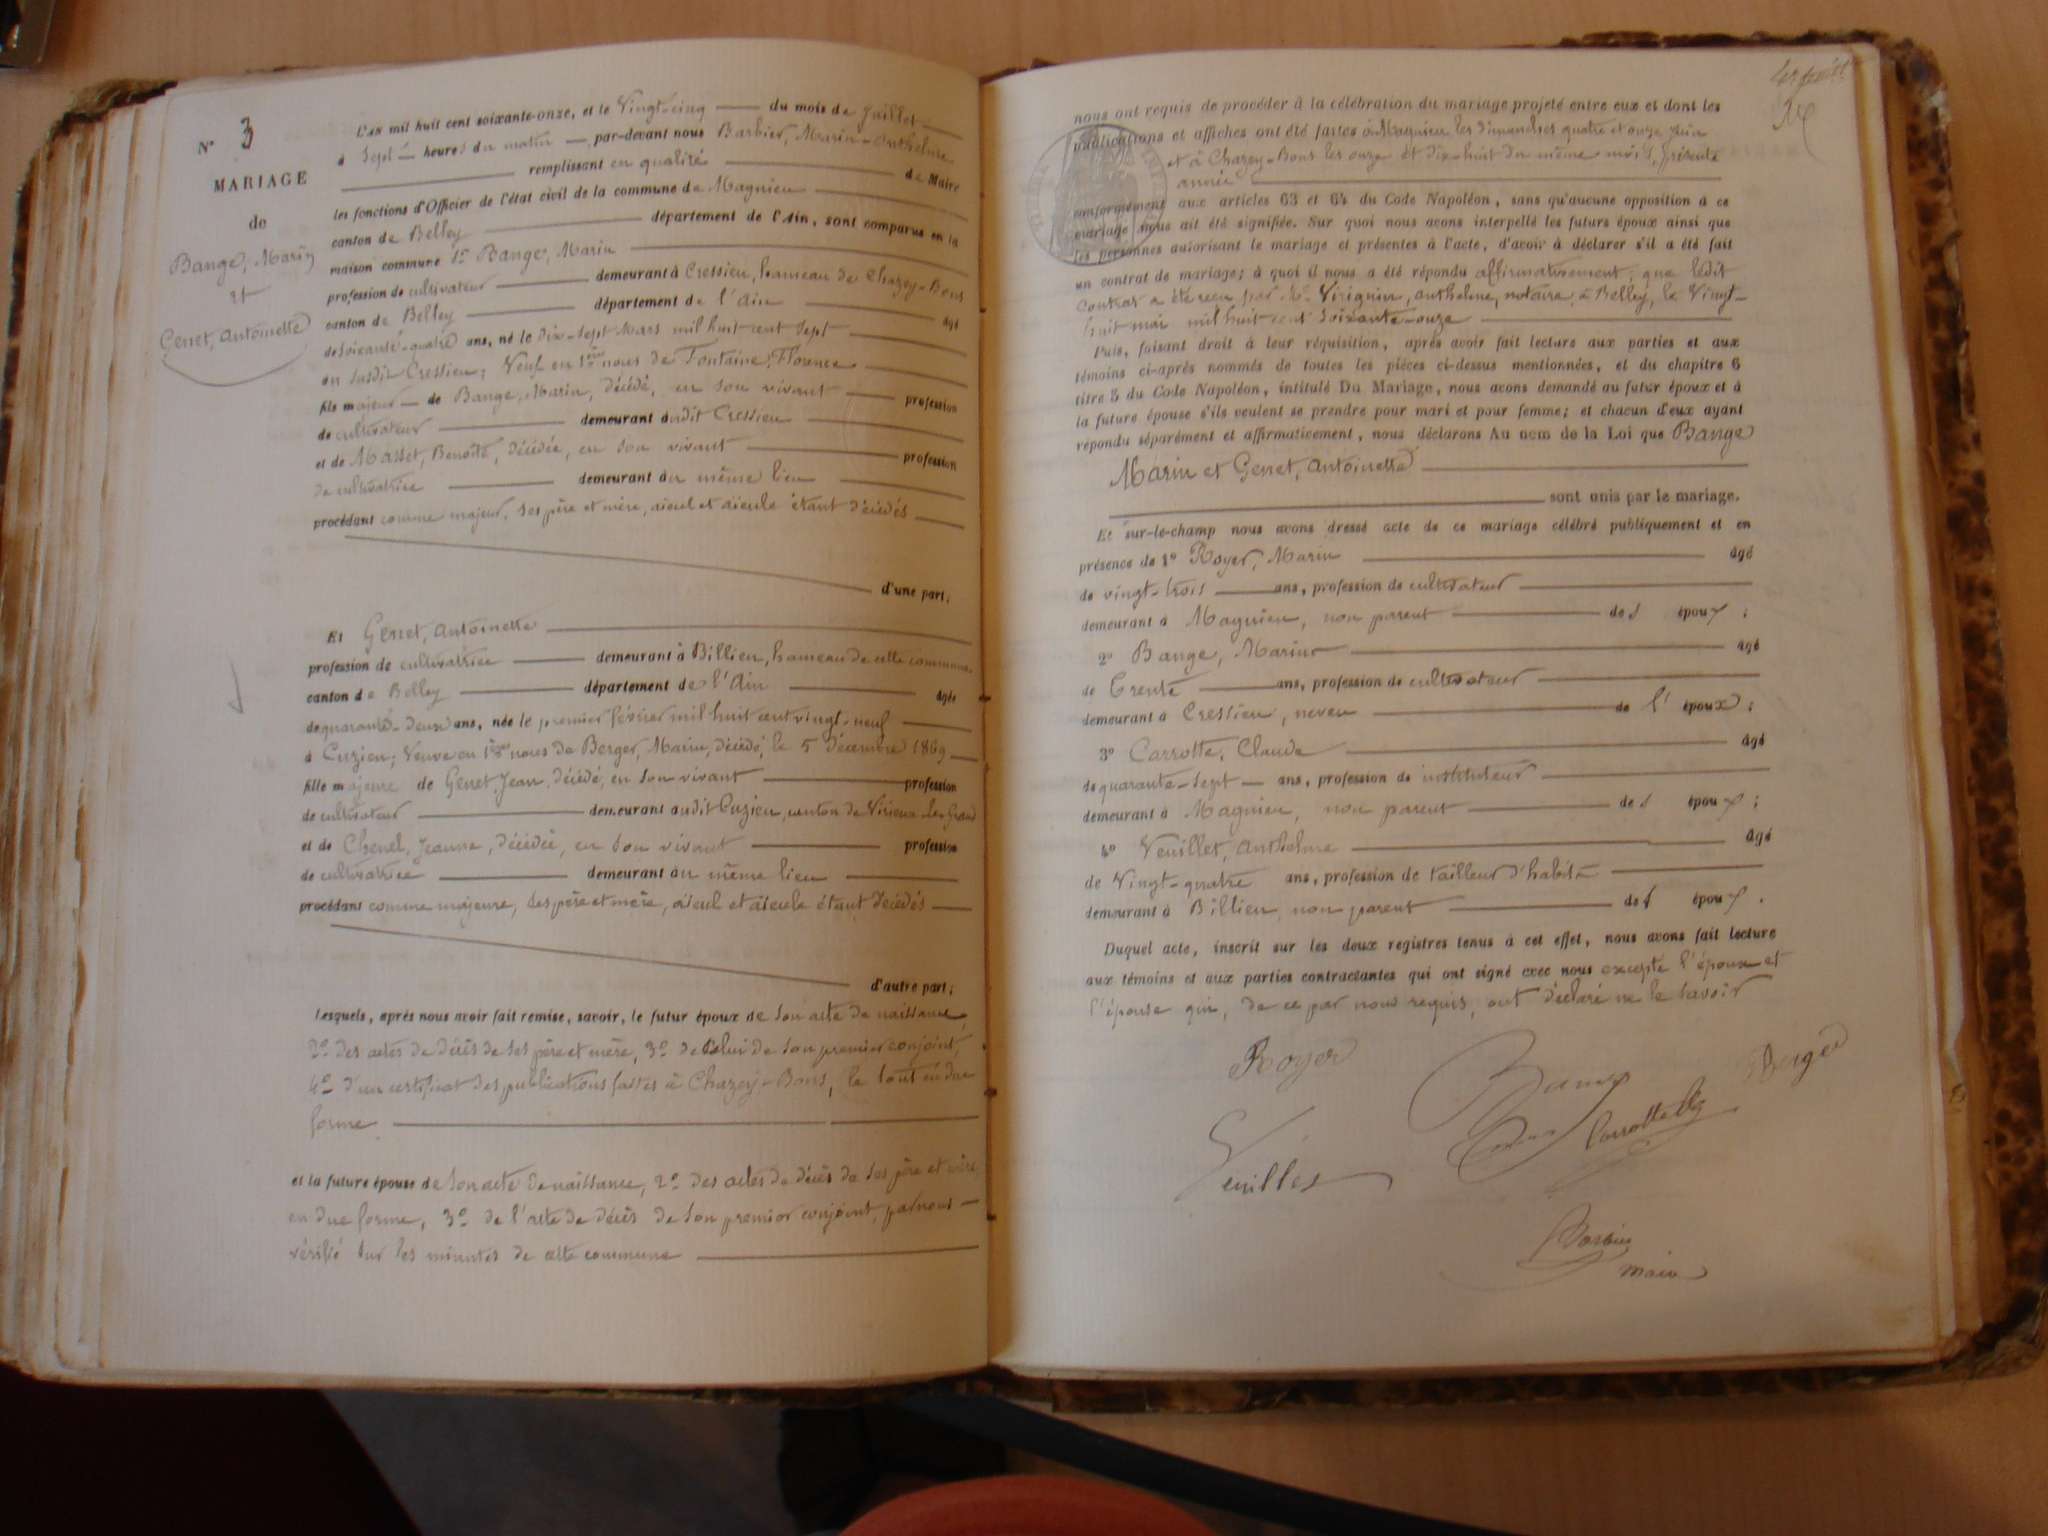 N° 3
MARIAGE
de
Bange, Marin
et
Genet, Antoinette
L'an mil huit cent soixante-onze, et le Vingt-cinq du mois de Juillet
à Sept heures du matin par-devant nous Barbier, Marin-Anthelme
remplissant en qualité de Maire
les fonctions d'Officier de l'état civil de la commune de Magnieu
canton de Belley département de l'Ain, sont comparus en la
maison commune 1° Bange, Marin
profession de cultivateur demeurant à Cressieu, hameau de Chazey-Bons
canton de Belley département de l'Ain âgé
de soixante-quatre ans, né le dix-sept Mars mil huit cent sept
au susdit Cressieu; Veuf en 1ères nous de Fontaine, Florence
fils majeur de Bange, Marin, décédé, en son vivant profession
de cultivateur demeurant audit Cressieu
et de Masset, Benoîte, décédée, en son vivant profession
de cultivatrice demeurant au même lieu
procédant comme majeur, ses père et mère, aïeul et aïeule étant décédés
d'une part;
Et Genet, Antoinette
profession de cultivatrice demeurant à Billieu, hameau de cette commune
canton de Belley département de l'Ain âgée
de quarante-deux ans, née le premier février mil huit cent vingt-neuf
à Cuzieu; Veuve en 1ères nous de Berger, Marin, décédé, le 5 décembre 1869
fille majeure de Genet, Jean, décédé, en son vivant profession
de cultivateur demeurant audit Cuzieu, canton de Virieu-le-Grand
et de Chenel, Jeanne, décédée, en son vivant profession
de cultivatrice demeurant au même lieu
procédant comme majeure, ses père et mère, aïeul et aïeule étant décédés
d'autre part;
Lesquels, après nous avoir fait remise, savoir, le futur époux de son acte de naissance,
2° des actes de décès de ses père et mère, 3° de celui de son premier conjoint,
4° d'un certificat des publications faites à Chazey-Bons, le tout en due
forme
et la future épouse de son acte de naissance, 2° des actes de décès de ses père et mère,
en due forme, 3° de l'acte de décès de son premier conjoint, par nous
vérifié sur les minutes de cette commune
4e feuillet
nous ont requis de procéder à la célébration du mariage projeté entre eux et dont les
publications et affiches ont été faites à Magnieu les dimanches quatre et onze Juin
et à Chazey-Bons les onze et dix-huit du même mois, présente
année
conformément aux articles 63 et 64 du Code Napoléon, sans qu'aucune opposition à ce
mariage nous ait été signifiée. Sur quoi nous avons interpellé les futurs époux ainsi que
les personnes autorisant le mariage et présentes à l'acte, d'avoir à déclarer s'il a été fait
un contrat de mariage; à quoi il nous a été répondu affirmativement; que ledit
contrat a été reçu par Me Virignin, anthelme, notaire à Belley, le Vingt-
huit mai mil huit cent soixante-onze
Puis, faisant droit à leur réquisition, après avoir fait lecture aux parties et aux
témoins ci-après nommés de toutes les pièces ci-dessus mentionnées, et du chapitre 6
titre 5 du Code Napoléon, intitulé Du Mariage, nous avons demandé au futur époux et à
la future épouse s'ils veulent se prendre pour mari et pour femme; et chacun d'eux ayant
répondu séparément et affirmativement, nous déclarons Au nom de la Loi que Bange
Marin et Genet, Antoinette
sont unis par le mariage.
Et sur-le-champ nous avons dressé acte de ce mariage célébré publiquement et en
présence de 1° Royer, Marin âgé
de vingt-trois ans, profession de cultivateur
demeurant à Magnieu, non parent des époux;
2° Bange, Marin âgé
de Trente ans, profession de cultivateur
demeurant à Cressieu, neveu de l'époux;
3° Carrotte, Claude âgé
de quarante-sept ans, profession de instituteur
demeurant à Magnieu, non parent des époux;
4° Veuillet, Anthelme âgé
de Vingt-quatre ans, profession de tailleur d'habits
demeurant à Billieu, non parent des époux.
Duquel acte, inscrit sur les deux registres tenus à cet effet, nous avons fait lecture
aux témoins et aux parties contractantes qui ont signé avec nous excepté l'époux et
l'épouse qui, de ce par nous requis, ont déclaré ne le savoir
Royer
Berger
Carrotte
Veuillet
Barbier
maire